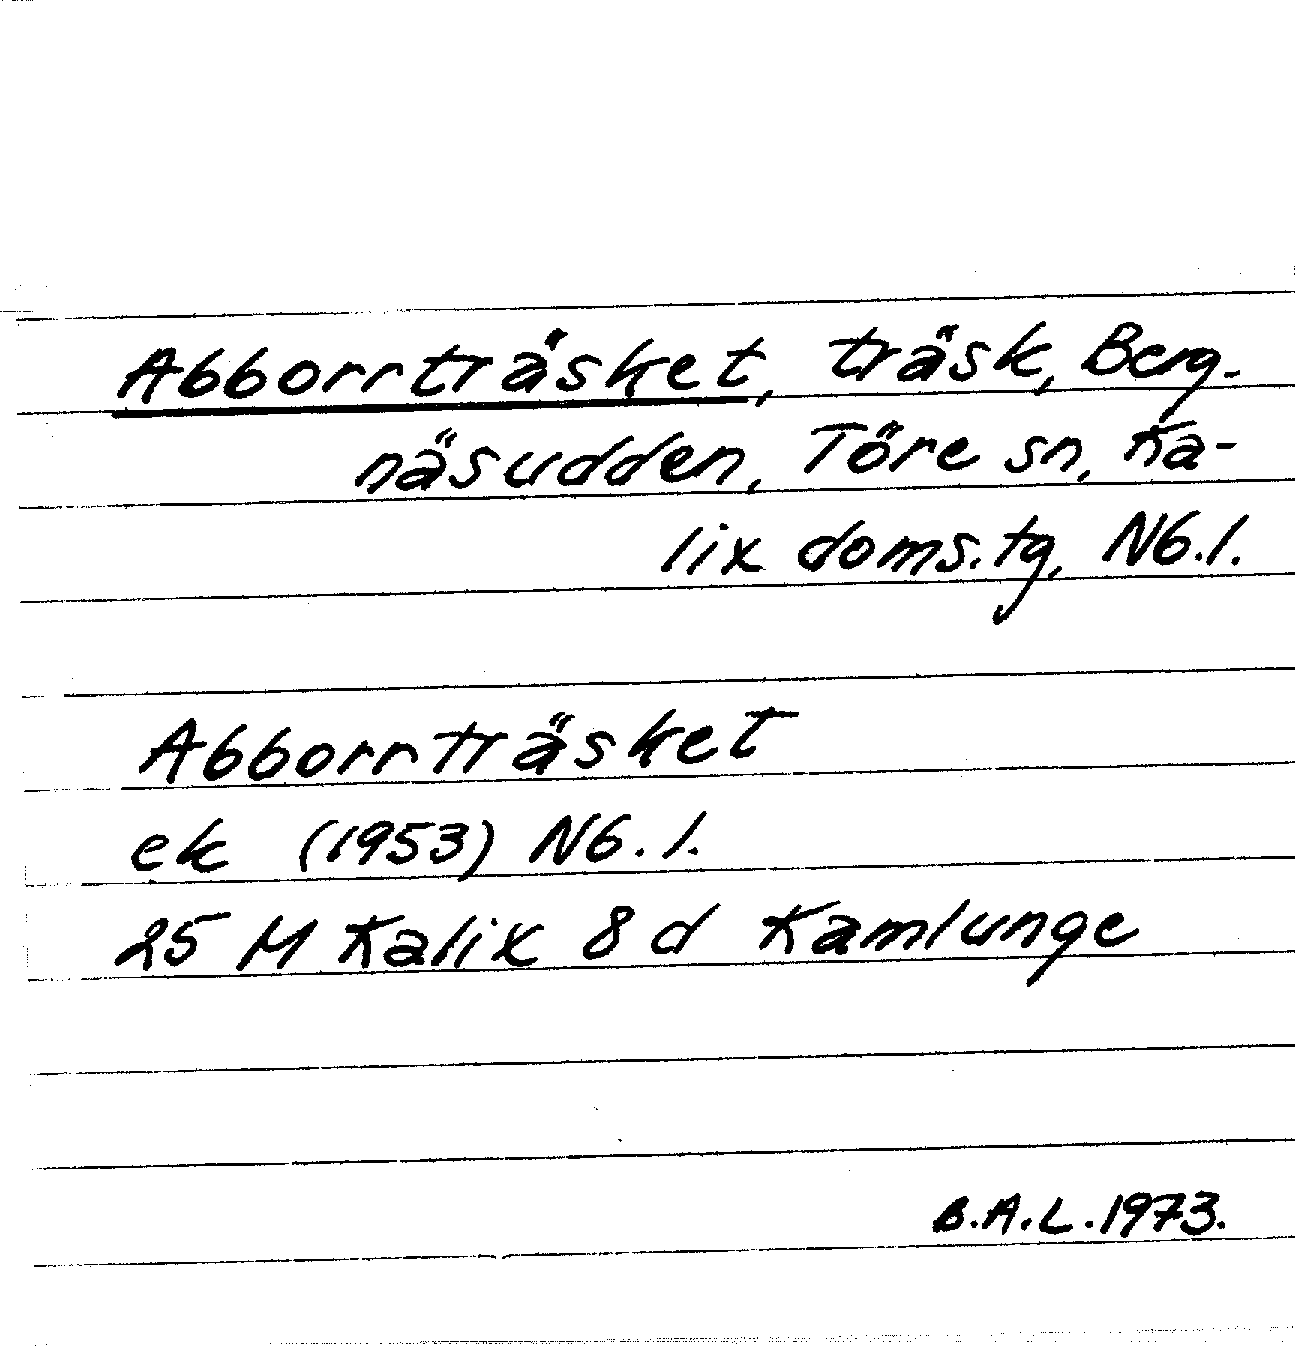 Abborrträsket, träsk, Berg-
näsudden, Töre sn, Ka-
lix doms.tg, N6.l.
Abborrträsket
ek (1953) N6.l.
25 M Kalix 8 d Kamlunge
B.A.L. 1973.